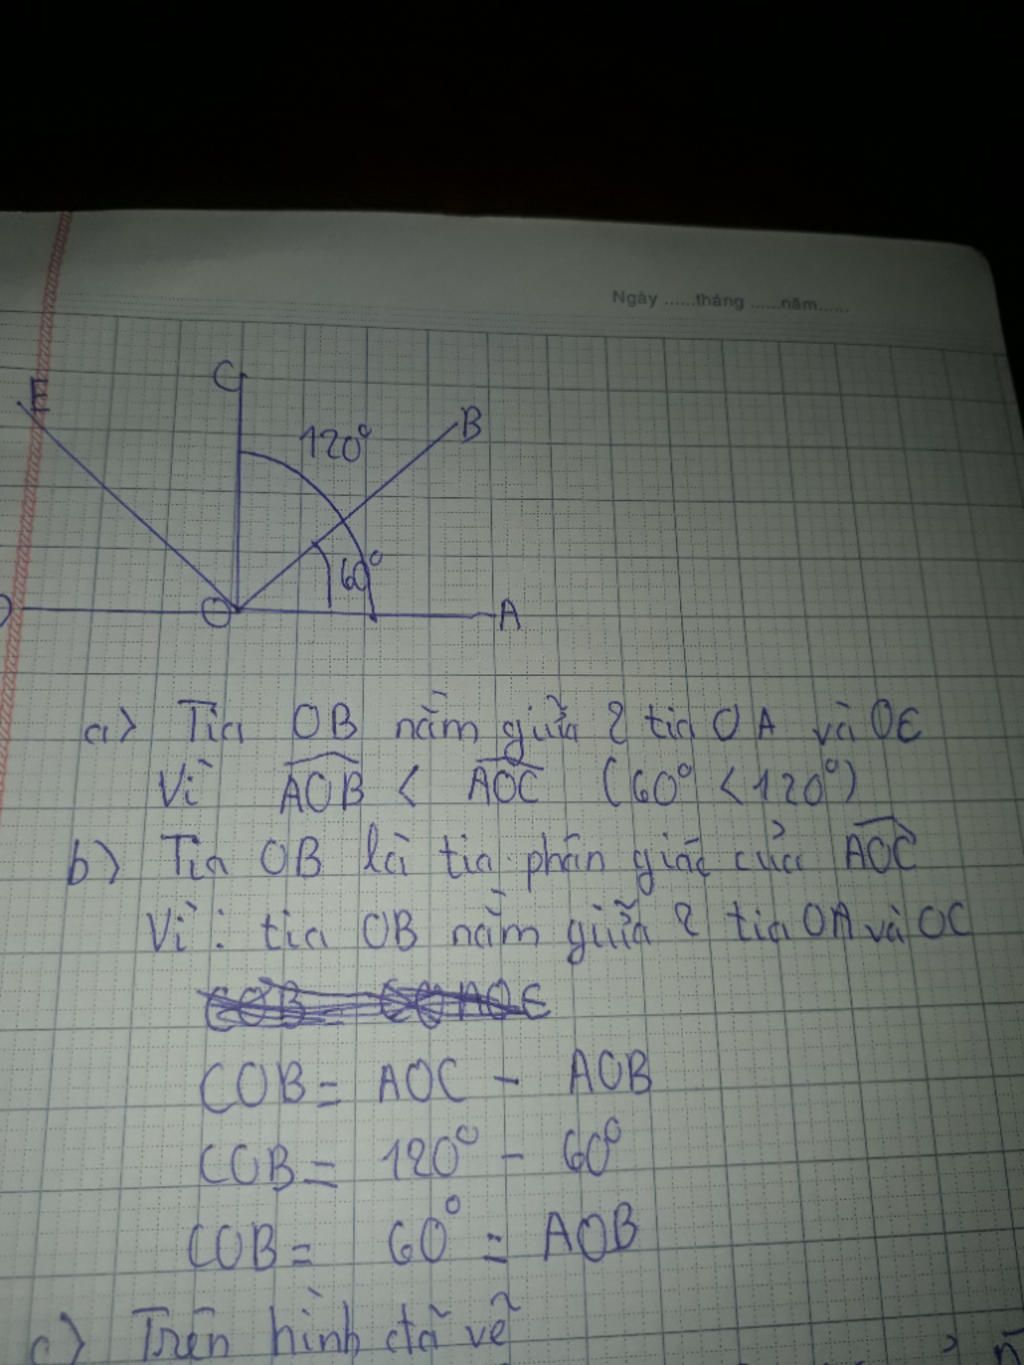 Ngày ......tháng ......năm......
C
E
B
120°
60°
O
A
a) Tia OB nằm giữa 2 tia OA và OC
Vì AOB < AOC (60° < 120°)
b) Tia OB là tia phân giác của AOC
Vì : tia OB nằm giữa 2 tia OA và OC
COB = AOC - AOB
COB = 120° - 60°
COB = 60° = AOB
c) Trên hình đã vẽ